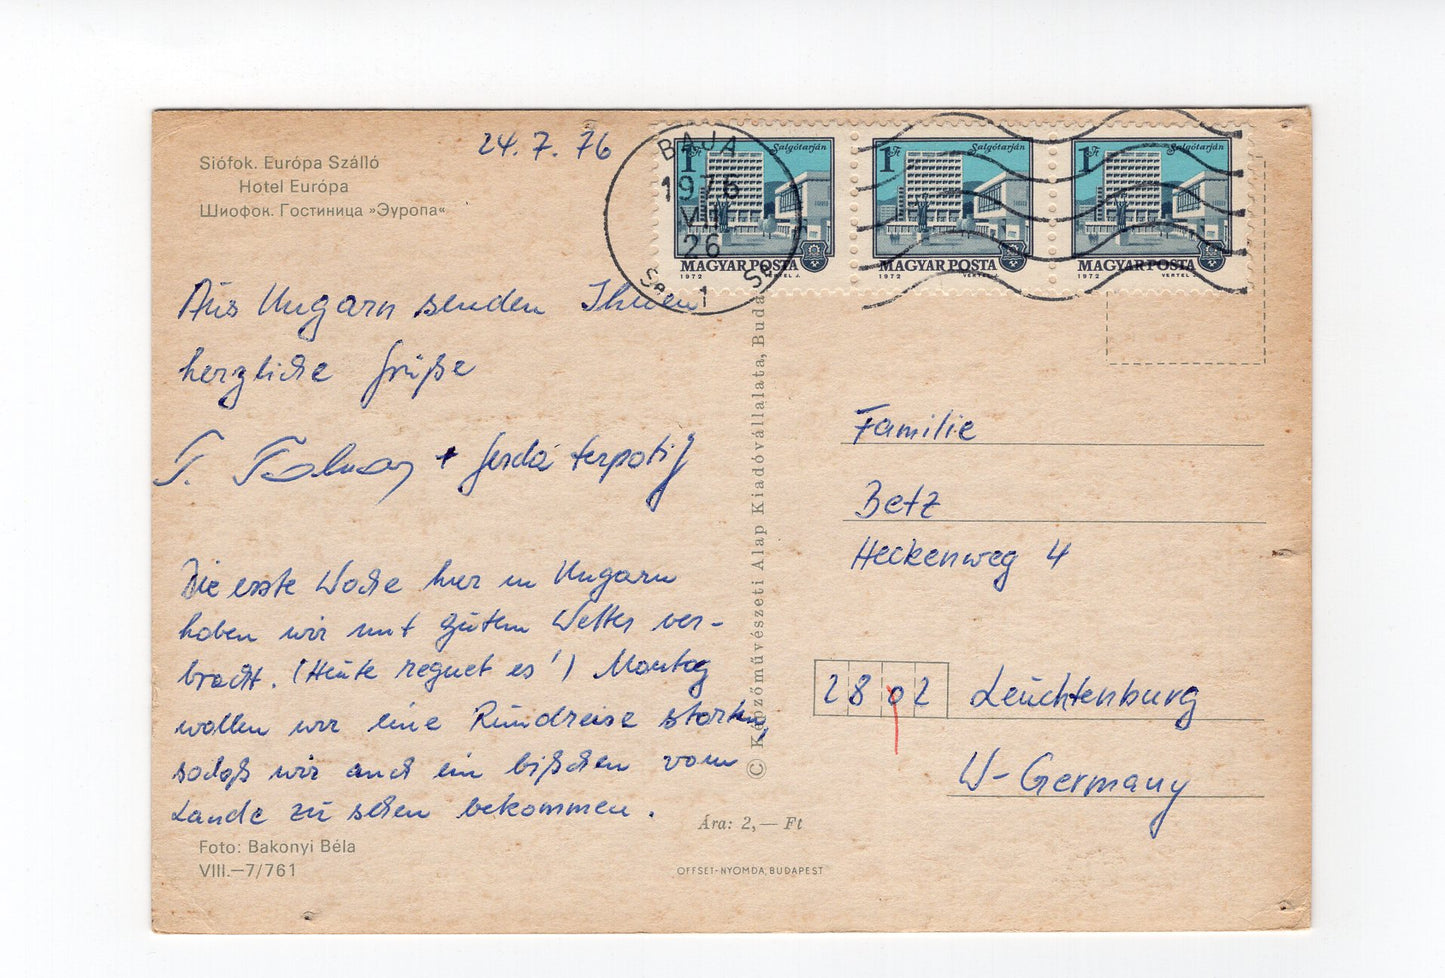 24. 7. 76
Siófok. Európa Szálló
Hotel Európa
Шиофок. Гостиница »Эуропа«
Aus Ungarn senden Ihnen
herzliche Grüße
T. +
Die erste Woche hier in Ungarn
haben wir mit gutem Wetter ver-
bracht. (Heute regnet es!) Montag
wollen wir eine Rundreise starten,
sodaß wir auch ein bißchen vom
Lande zu sehen bekommen.
Foto: Bakonyi Béla
VIII.—7/761
© Képzőművészeti Alap Kiadóvállalata, Buda
Ára: 2,— Ft
OFFSET-NYOMDA, BUDAPEST
BAJA
1976
VII
26
1
1 Ft Salgótarján
MAGYAR POSTA
1972 VERTEL J.
1 Ft Salgótarján
MAGYAR POSTA
1972 VERTEL J.
1 Ft Salgótarján
MAGYAR POSTA
1972 VERTEL J.
Familie
Betz
Heckenweg 4
2802 Leuchtenburg
W-Germany